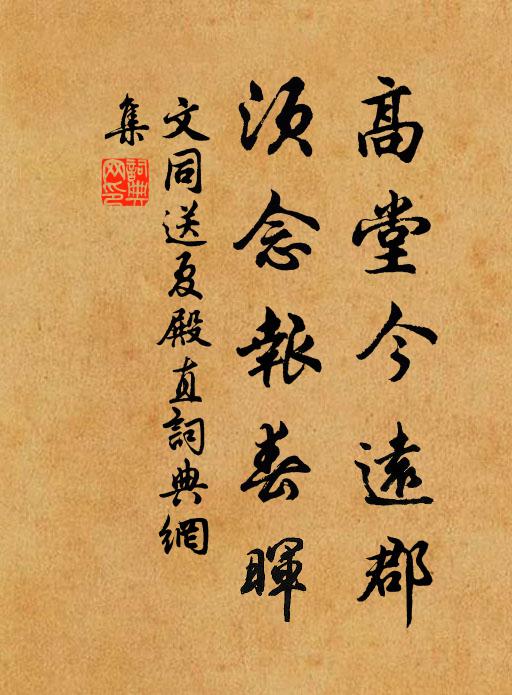 高堂今遠郡
須念報春暉
文同送夏殿直詞典網
集
詞典網印